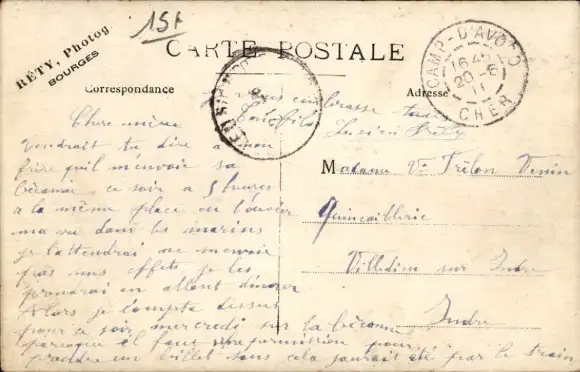 15f
RÉTY, Photog.
BOURGES
CARTE POSTALE
CAMP-D'AVORD
16 4
20 -6
11
CHER
Correspondance
Adresse
embrasse
ton fils
Lucien
Chère mère
Voudrait tu dire a mon
frère qu'il m'envoie sa
bécane ce soir a 5 heures
a la même place ou l'ouvrier
ma vu dans les marins
je l'attendrai ne m'envoie
pas mes effets je les
prendrai en allant dîner
Alors je compte dessus
pour ce soir mercredi sur la bécane
parceque il faut permission pour
prendre un billet sans cela j'aurais été par le train
Madame Vve Trélon
Quincaillerie
Villedieu sur Indre
Indre